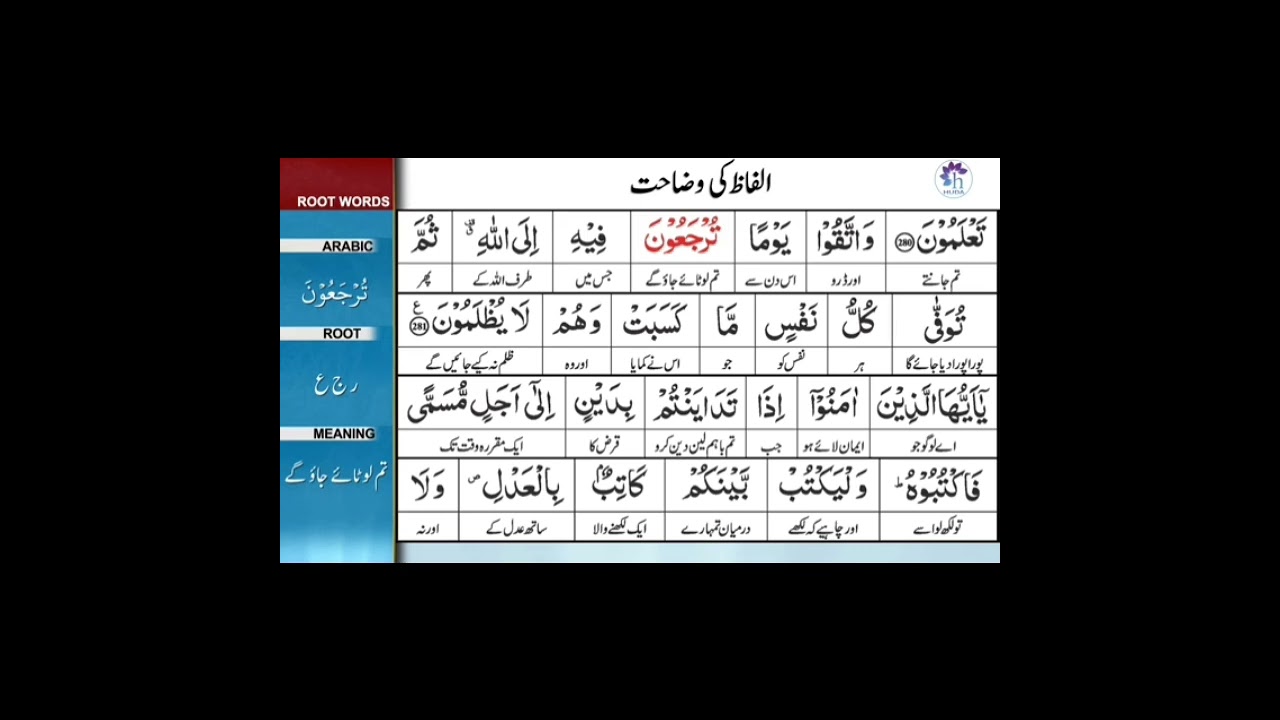 الفاظ کی وضاحت
HUDA
ROOT WORDS
ARABIC
تُرْجَعُوْنَ
ROOT
ر ج ع
MEANING
تم لوٹائے جاؤ گے
تَعْلَمُوْنَ 280 وَاتَّقُوْا يَوْمًا تُرْجَعُوْنَ فِيْهِ اِلَى اللّٰهِ ۗ ثُمَّ
تم جانتے اور ڈرو اس دن سے تم لوٹائے جاؤ گے جس میں طرف اللہ کے پھر
تُوَفّٰى كُلُّ نَفْسٍ مَّا كَسَبَتْ وَهُمْ لَا يُظْلَمُوْنَ ع 281
پورا پورا دیا جائے گا ہر نفس کو جو اس نے کمایا اور وہ ظلم نہ کیے جائیں گے
يٰٓاَيُّهَا الَّذِيْنَ اٰمَنُوْٓا اِذَا تَدَايَنْتُمْ بِدَيْنٍ اِلٰٓى اَجَلٍ مُّسَمًّى
اے لوگو جو ایمان لائے ہو جب تم باہم لین دین کرو قرض کا ایک مقررہ وقت تک
فَاكْتُبُوْهُ ؕ وَلْيَكْتُبْ بَّيْنَكُمْ كَاتِبٌۢ بِالْعَدْلِ ۖ وَلَا
تو لکھ لو اسے اور چاہیے کہ لکھے درمیان تمہارے ایک لکھنے والا ساتھ عدل کے اور نہ